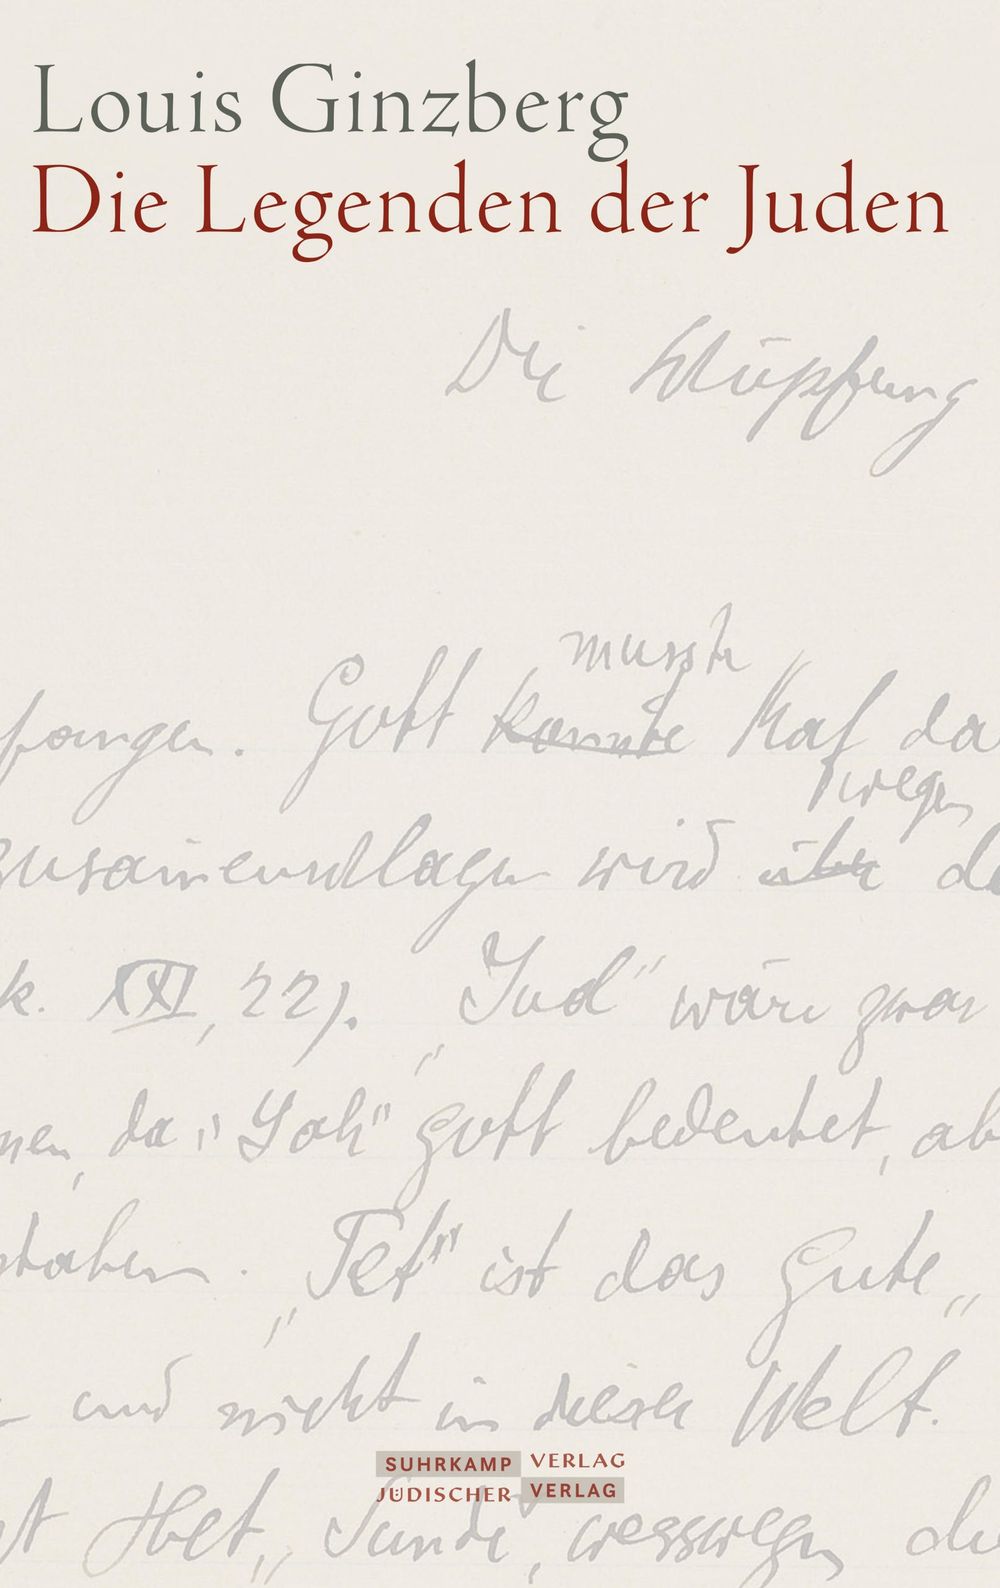 Louis Ginzberg
Die Legenden der Juden
Die Schöpfung
musste
fangen. Gott konnte Kaf da
wegen
zusammenschlagen wird über de
k. XXI, 22). „Jud“ wäre zwar
nen, da „Yah“ Gott bedeutet, ab
staben. „Tet“ ist das Gute„
und nicht in dieser Welt.
SUHRKAMP VERLAG
JÜDISCHER VERLAG
t Het„ Sünde, wesswegen di